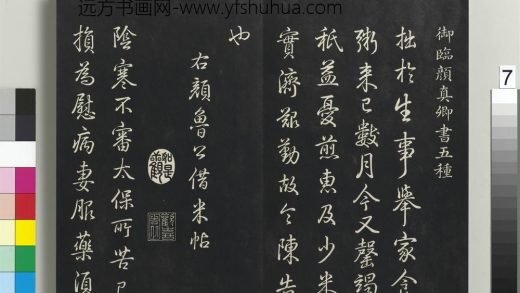 远方书画网-www.yfshuhua.com
御臨顔真卿書五種
拙於生事舉家食
粥来已數月今又罄竭
秖益憂煎恵及少米
實濟艱勤故令陳告
也
右顔魯公借米帖
陰寒不審太保所苦已
損為慰病妻服藥湏
7